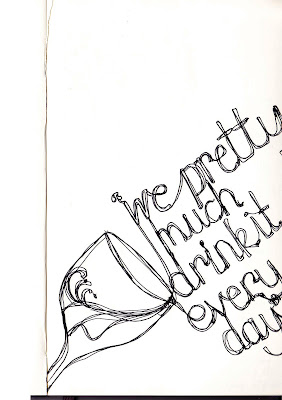 we pretty
much
drink it
every
day